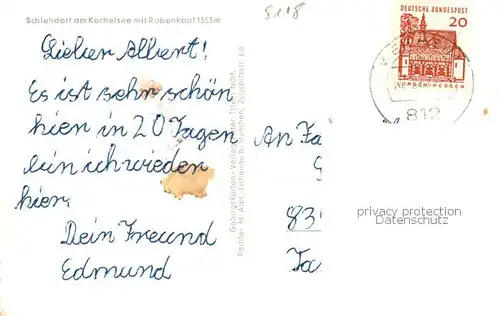 Schlehdorf am Kochelsee mit Rabenkopf 1553m
8118
DEUTSCHE BUNDESPOST
20
LORSCH/HESSEN
812
Lieber Albert!
Es ist sehr schön
hier in 20 Tagen
bin ich wieder
hier.
Dein Freund
Edmund
Gebirgskarten-Verlag
An Fa
83
privacy protection
Datenschutz